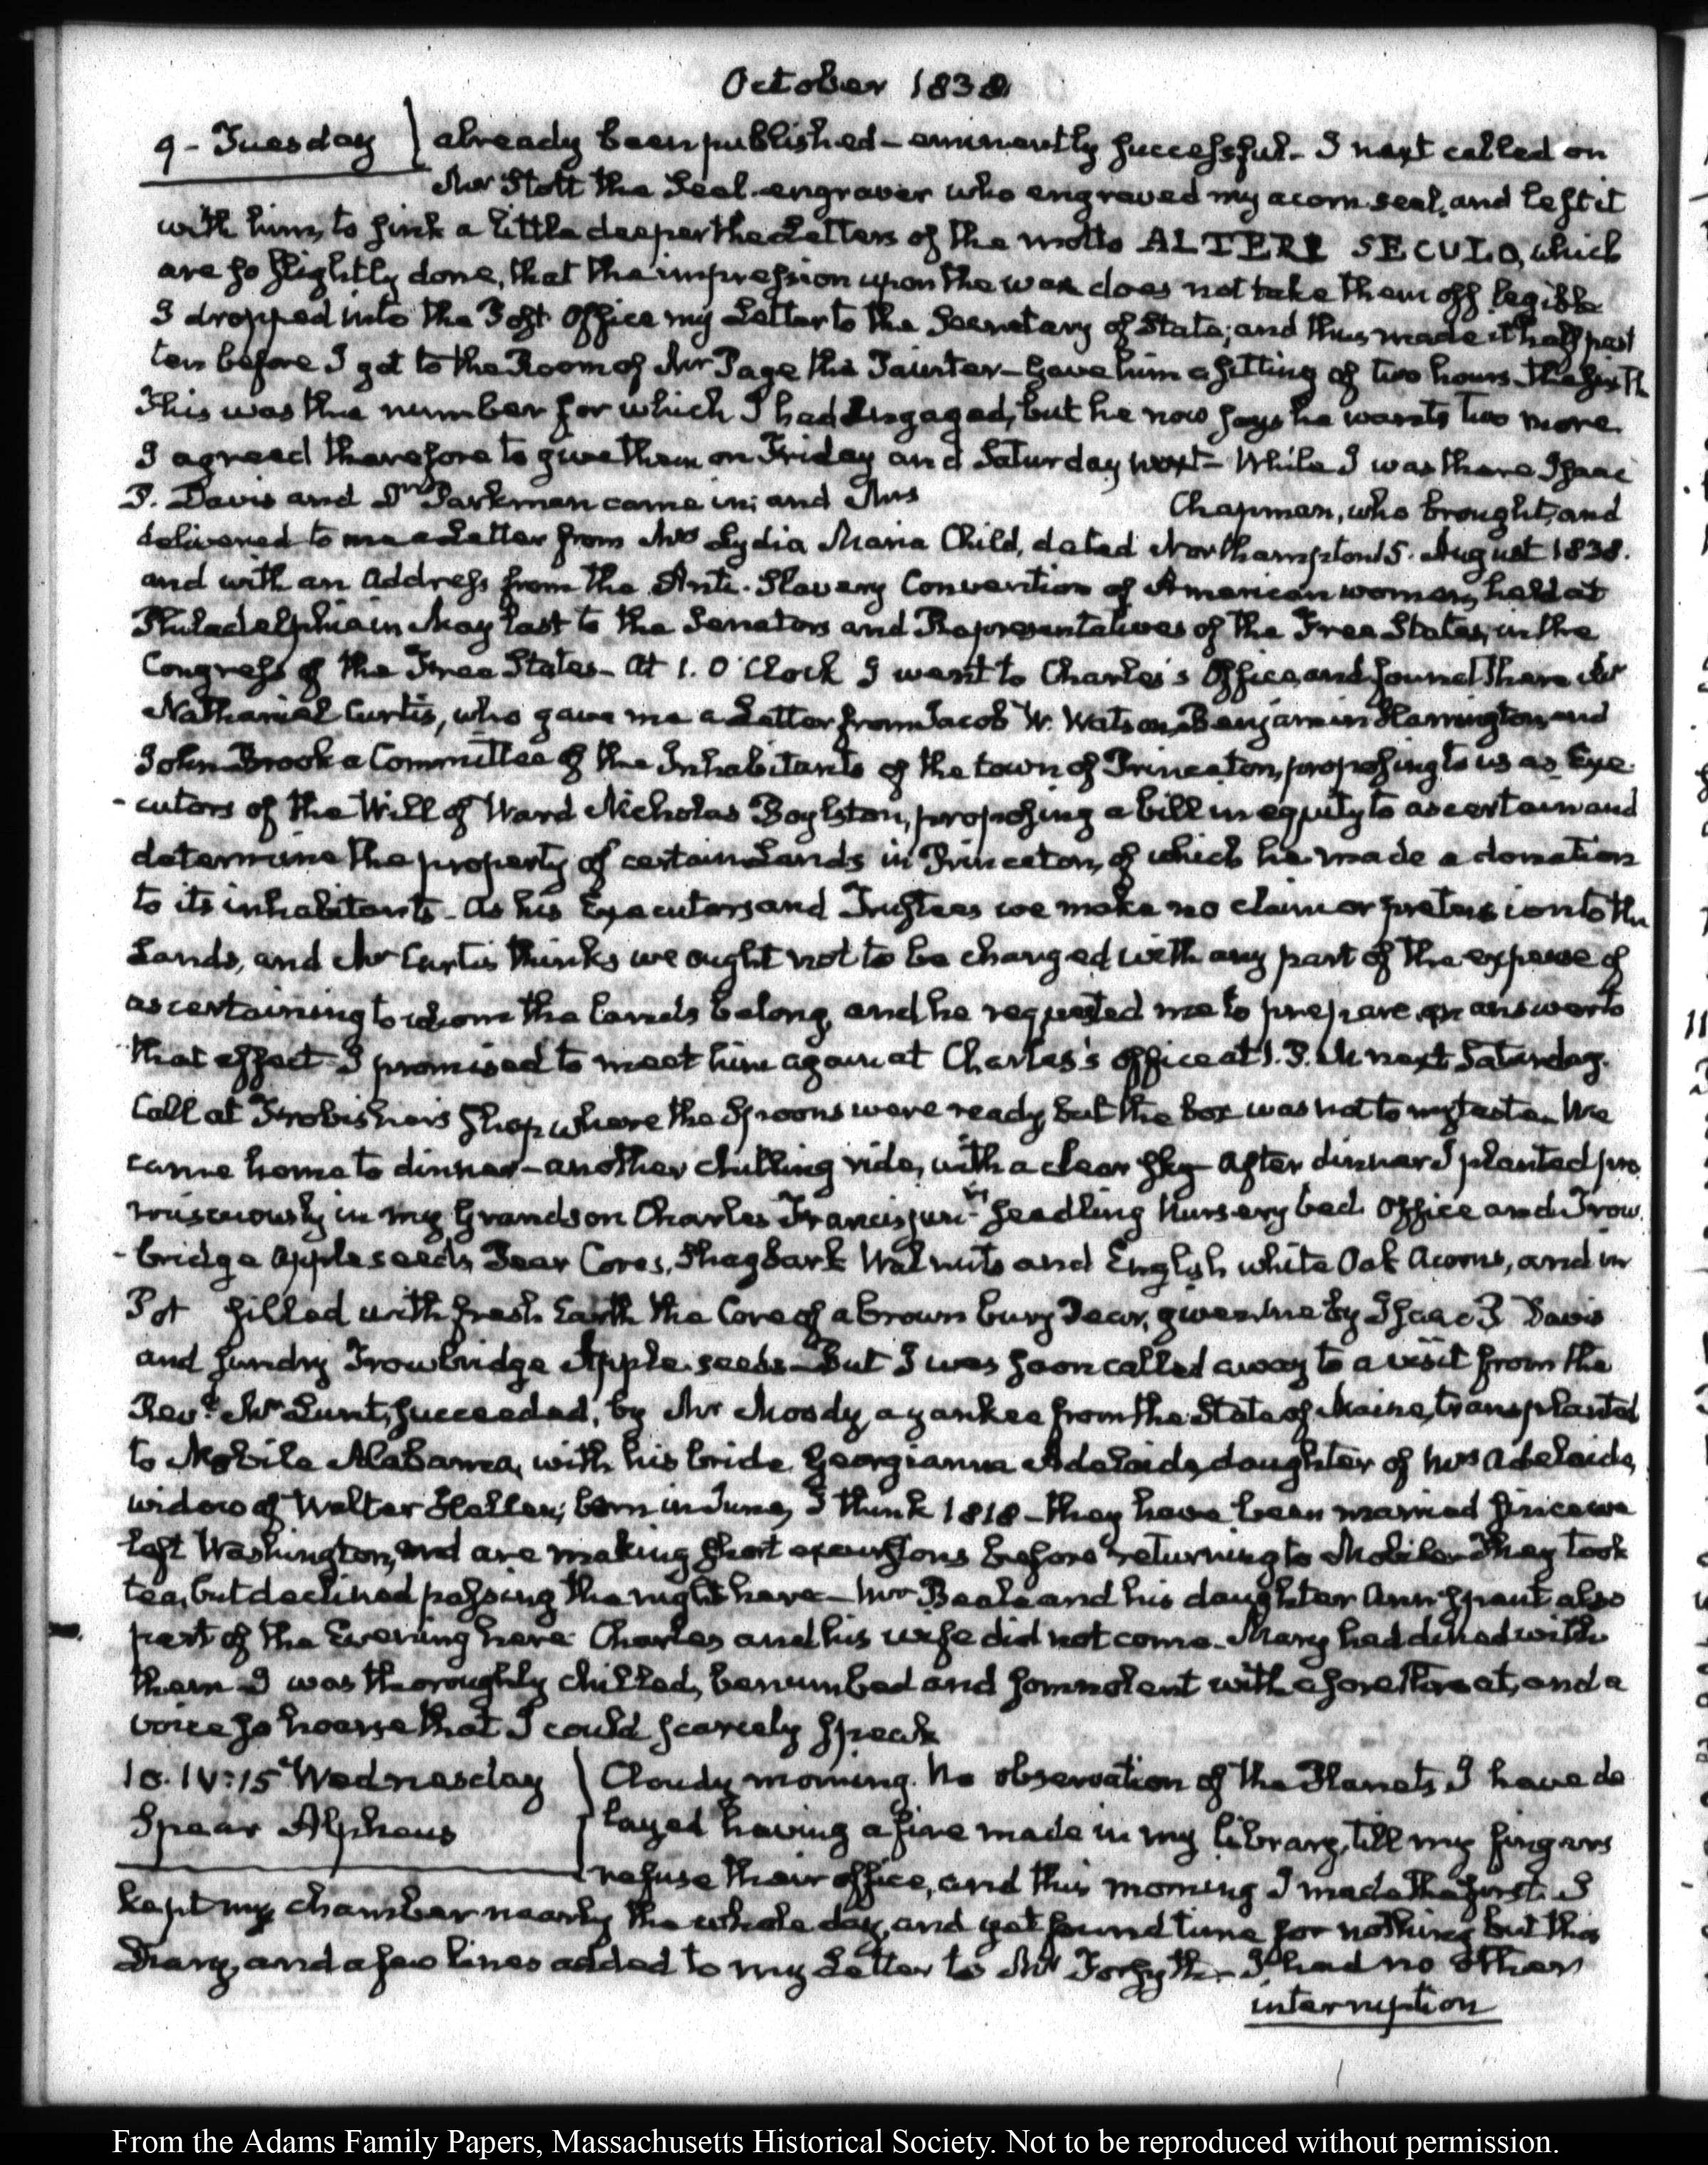 October 1838
9 - Tuesday
already been published - eminently successful - I next called on
Mr Stott the Seal-engraver who engraved my acorn seal, and left it
with him, to sink a little deeper the Letters of the motto ALTERI SECULO, which
are so slightly done, that the impression upon the wax does not take them off legible
I dropped into the Post Office my Letter to the Secretary of State; and thus made it half past
ten before I got to the Room of Mr Page the Painter - Gave him a sitting of two hours. The sixth
This was the number for which I had Engaged, but he now says he wants two more.
I agreed therefore to give them on Friday and Saturday next - While I was there Isaac
P. Davis and Dr Parkman came in; and Mrs Chapman, who brought, and
delivered to me a Letter from Mrs Lydia Maria Child, dated Northampton 5. August 1838.
and with an Address from the Anti-Slavery Convention of American women, held at
Philadelphia in May last to the Senators and Representatives of the Free States, in the
Congress of the Free States - At 1. O'Clock I went to Charles's Office, and found there Mr
Nathaniel Curtis, who gave me a Letter from Jacob W. Watson, Benjamin Harrington and
John Brooks a Committee of the Inhabitants of the town of Princeton, proposing to us as Exe-
-cutors of the Will of Ward Nicholas Boylston, proposing a bill in equity to ascertain and
determine the property of certain Lands in Princeton, of which he made a donation
to its inhabitants - As his Executors and Trustees we make no claim or pretension to the
Lands, and Mr Curtis thinks we ought not to be charged with any part of the expense of
ascertaining to whom the lands belong, and he requested me to prepare an answer to
that effect - I promised to meet him again at Charles's office at 1. P.M. next Saturday.
Call at Frobisher's Shop where the Spoons were ready, but the box was not to my taste. We
came home to dinner - another chilling ride, with a clear sky - After dinner I planted pro
miscuously in my Grandson Charles Francis junr's Seedling Nursery bed Office and Trow
-bridge Apple seeds, Pear Cores, Shagbark Walnuts and English white Oak Acorns, and in
Pot filled with fresh Earth the Core of a brown bury Pear, given me by Isaac P Davis
and sundry Trowbridge Apple seeds - But I was soon called away to a visit from the
Revd. Mr Lunt, succeeded, by Mr Moody, a yankee from the State of Maine, transplanted
to Mobile Alabama, with his bride Georgianna Adelaide, daughter of Mrs Adelaide,
widow of Walter Hellen; born in June, I think 1818 - they have been married since we
left Washington, and are making short excursions before returning to Mobile. They took
tea, but declined passing the night here - Mr Beale and his daughter Ann spent also
part of the Evening here. Charles and his wife did not come - Mary had dined with
them - I was thoroughly chilled, benumbed and somnolent with a sore throat, and a
voice so hoarse that I could scarcely speak
10. IV:15 Wednesday
Spear Alpheus
Cloudy morning. No observation of the Planets, I have de
layed having a fire made in my library, till my fingers
refuse their office, and this morning I made the first. I
kept my chamber nearly the whole day, and yet found time for nothing but this
Diary, and a few lines added to my Letter to Mr Forsyth - I had no other
interruption
From the Adams Family Papers, Massachusetts Historical Society. Not to be reproduced without permission.